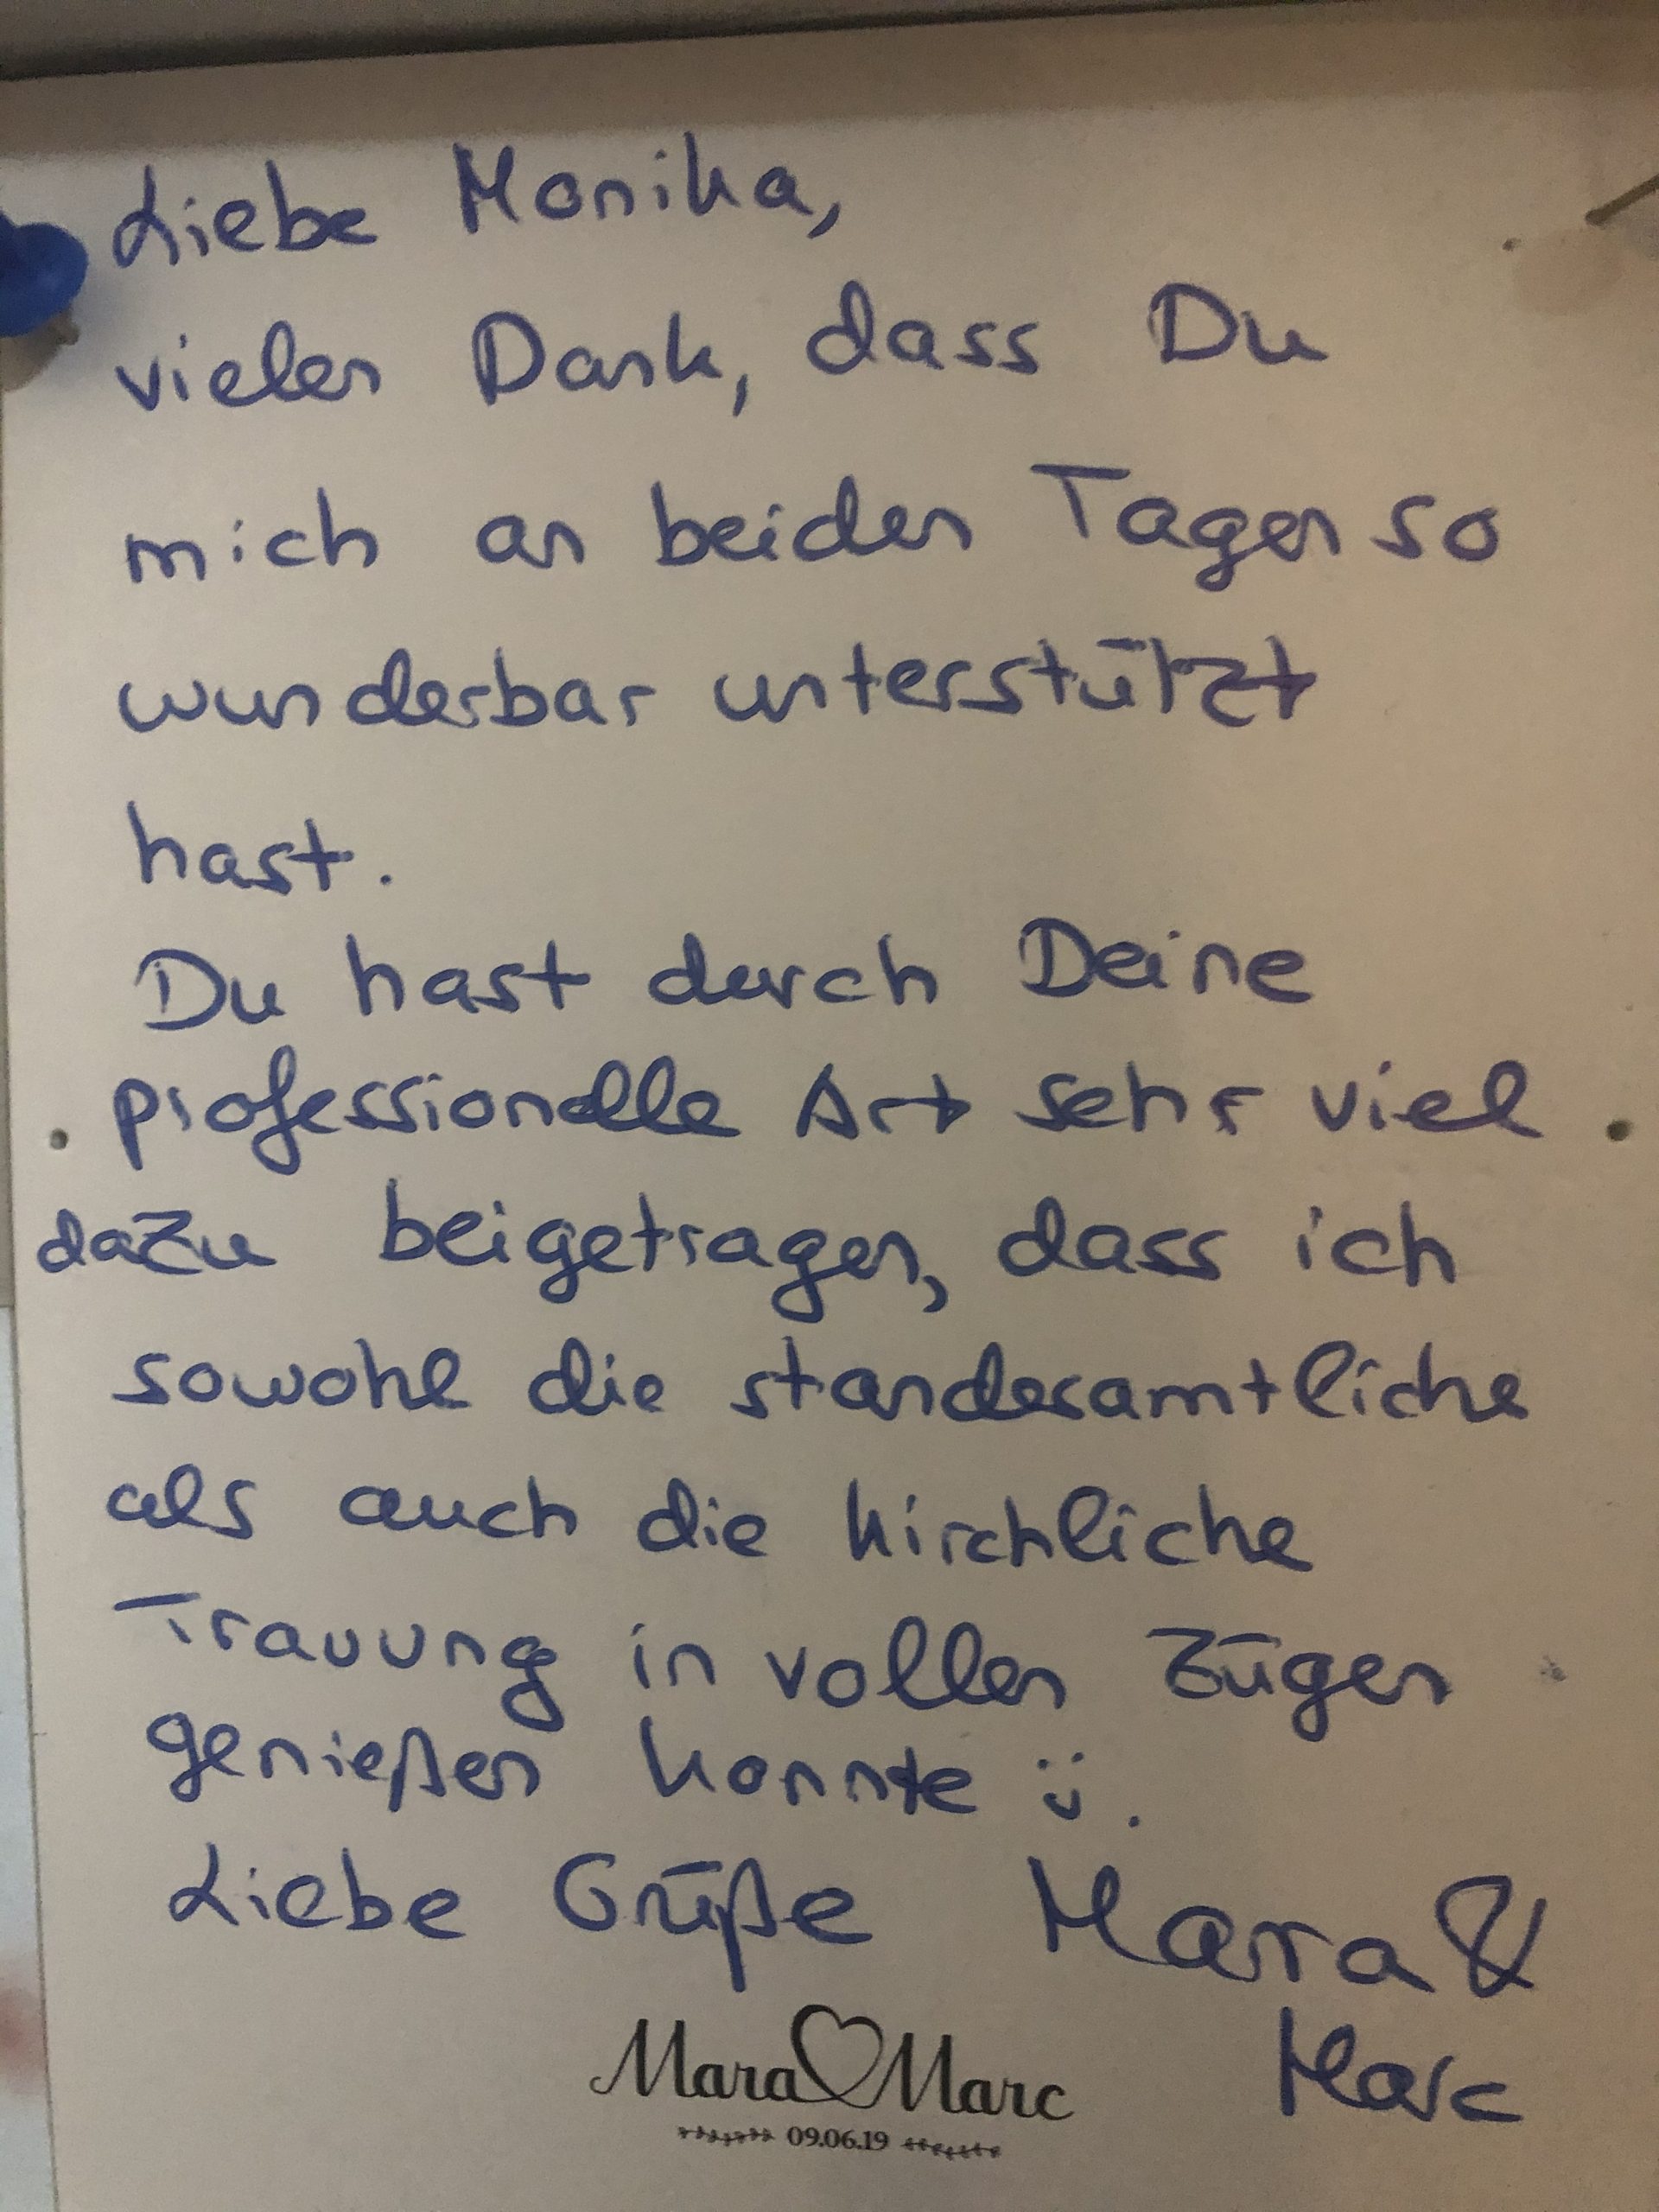 Liebe Monika,
vielen Dank, dass Du
mich an beiden Tagen so
wunderbar unterstützt
hast.
Du hast durch Deine
professionelle Art sehr viel
dazu beigetragen, dass ich
sowohl die standesamtliche
als auch die kirchliche
Trauung in vollen Zügen
genießen konnte ü.
Liebe Grüße Mara &
Marc
Mara♡Marc
09.06.19